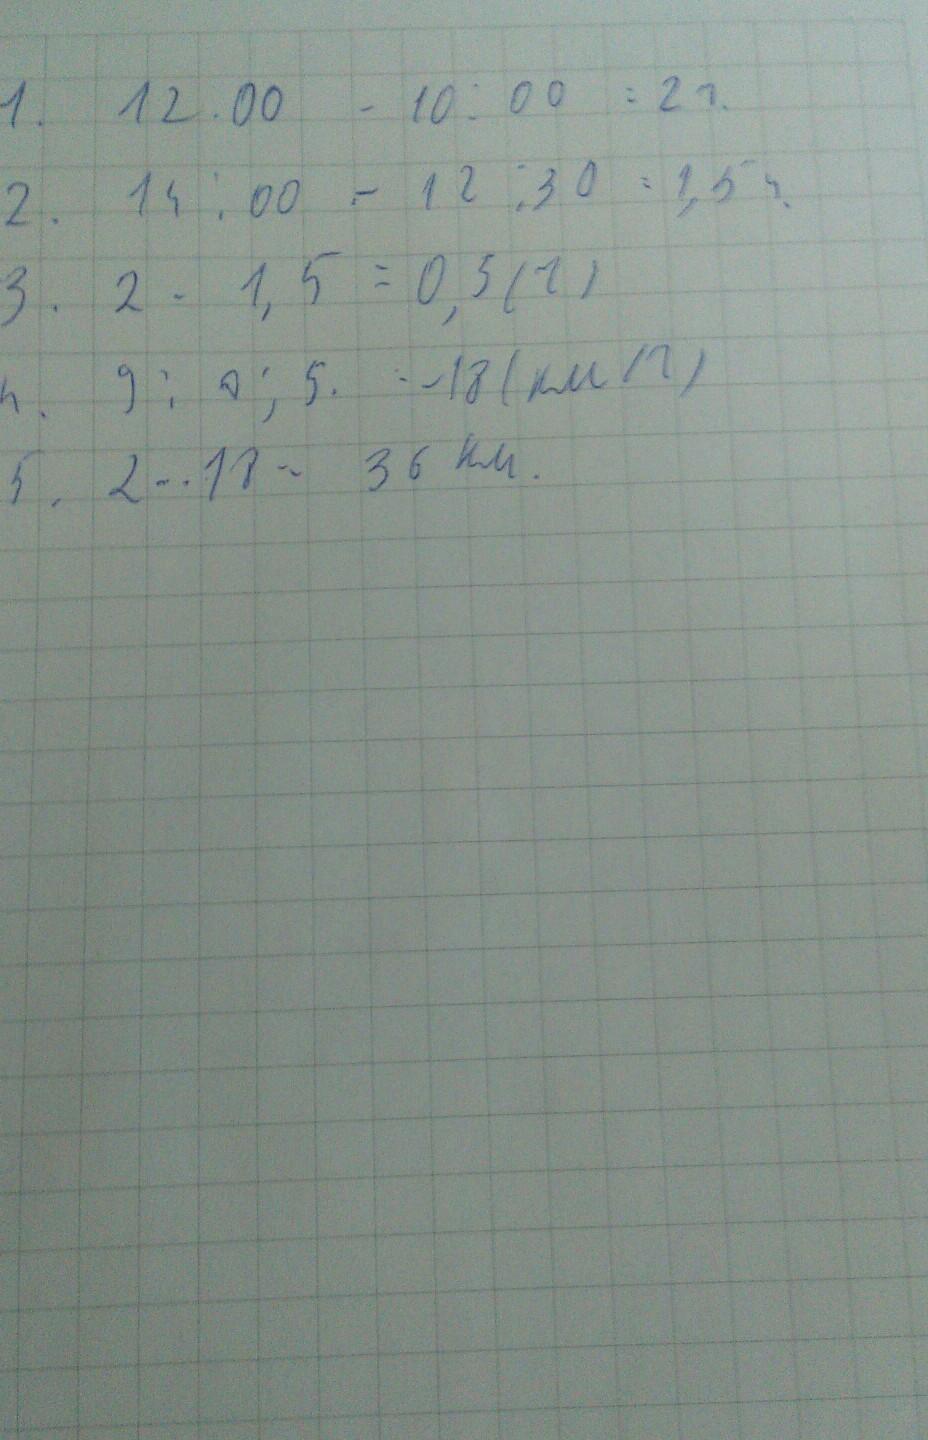 1. 12.00 - 10:00 = 2ч.
2. 14:00 - 12:30 = 1,5ч.
3. 2 - 1,5 = 0,5(ч)
4. 9: 0,5. = 18(км/ч)
5. 2 · 18 = 36 км.